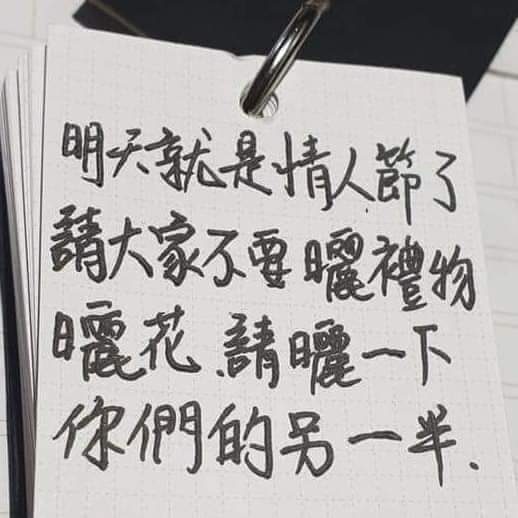 明天就是情人節了
請大家不要曬禮物
曬花、請曬一下
你們的另一半.